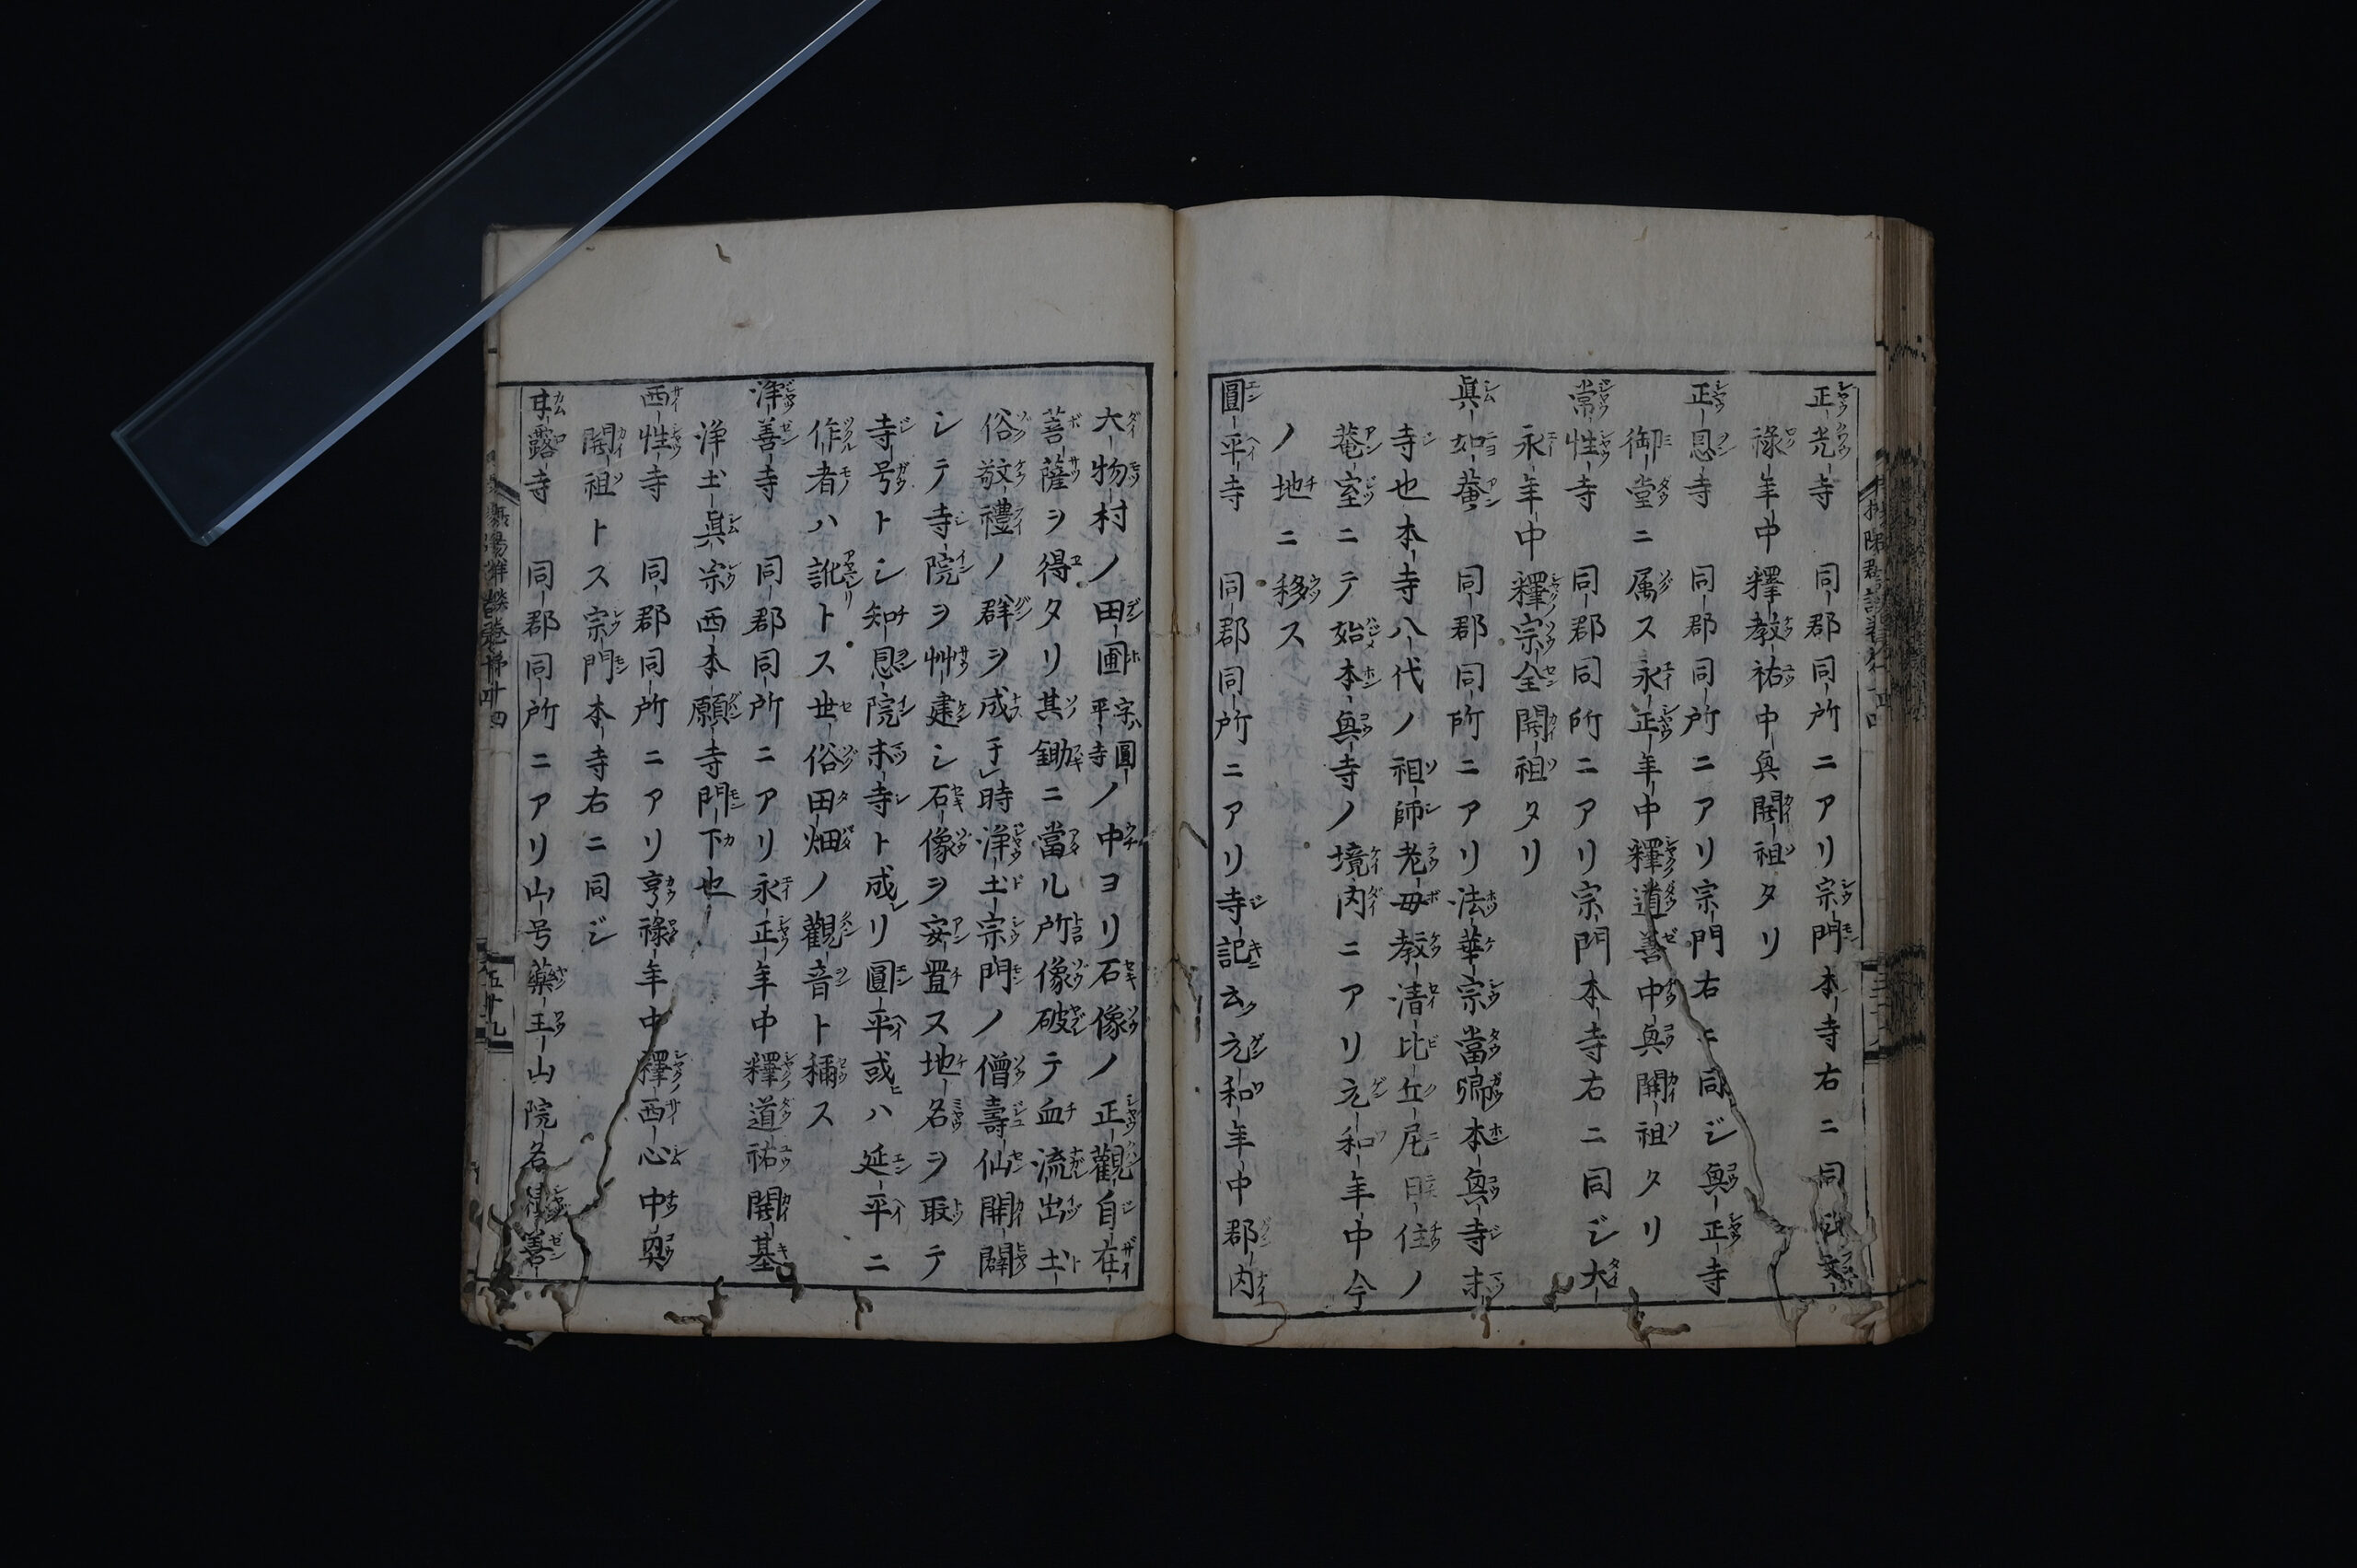 正光寺 同郡同所ニアリ宗門本寺右ニ同
祿年中釋教祐中興開祖タリ
正恩寺 同郡同所ニアリ宗門右ニ同ジ興正寺
御堂ニ属ス永正年中釋道善中興開祖タリ
常性寺 同郡同所ニアリ宗門本寺右ニ同ジ大
永年中釋宗全開祖タリ
眞如菴 同郡同所ニアリ法華宗當郷本興寺末
寺也本寺八代ノ祖師老母教清比丘尼住ノ
菴室ニテ始本興寺ノ境内ニアリ元和年中今
ノ地ニ移ス
圓平寺 同郡同所ニアリ寺記云元和年中郡内
大物村ノ田圃字圓平寺ノ中ヨリ石像ノ正觀自在
菩薩ヲ得タリ其鋤ニ當ル所像破テ血流出土
俗敬禮ノ群ヲ成于時浄土宗門ノ僧壽仙開闢
シテ寺院ヲ艸建シ石像ヲ安置ス地名ヲ取テ
寺号トシ知恩院末寺ト成レリ圓平或ハ延平ニ
作者ハ訛トス世俗田畑ノ觀音ト稱ス
浄善寺 同郡同所ニアリ永正年中釋道祐開基
浄土眞宗西本願寺門下也
西性寺 同郡同所ニアリ亨祿年中釋西心中興
開祖トス宗門本寺右ニ同ジ
甘露寺 同郡同所ニアリ山号藥王山院名善